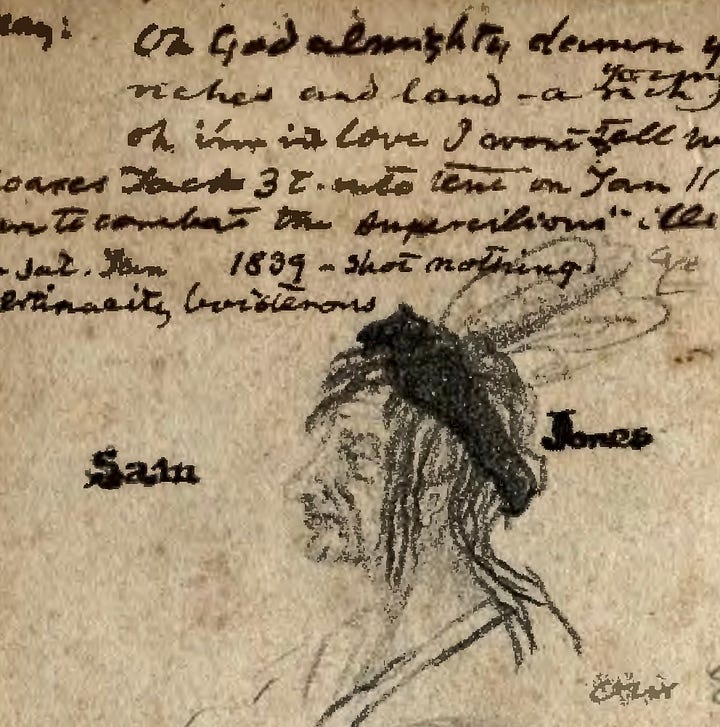 Oh God almighty damn
riches and land - a rich
young
oh i'm in love I wont tell
3 t. into tent on Jan 11
to combat the supercilious
sat. Jan 1839 - shot nothing
ertinacity boisterous
Sam Jones